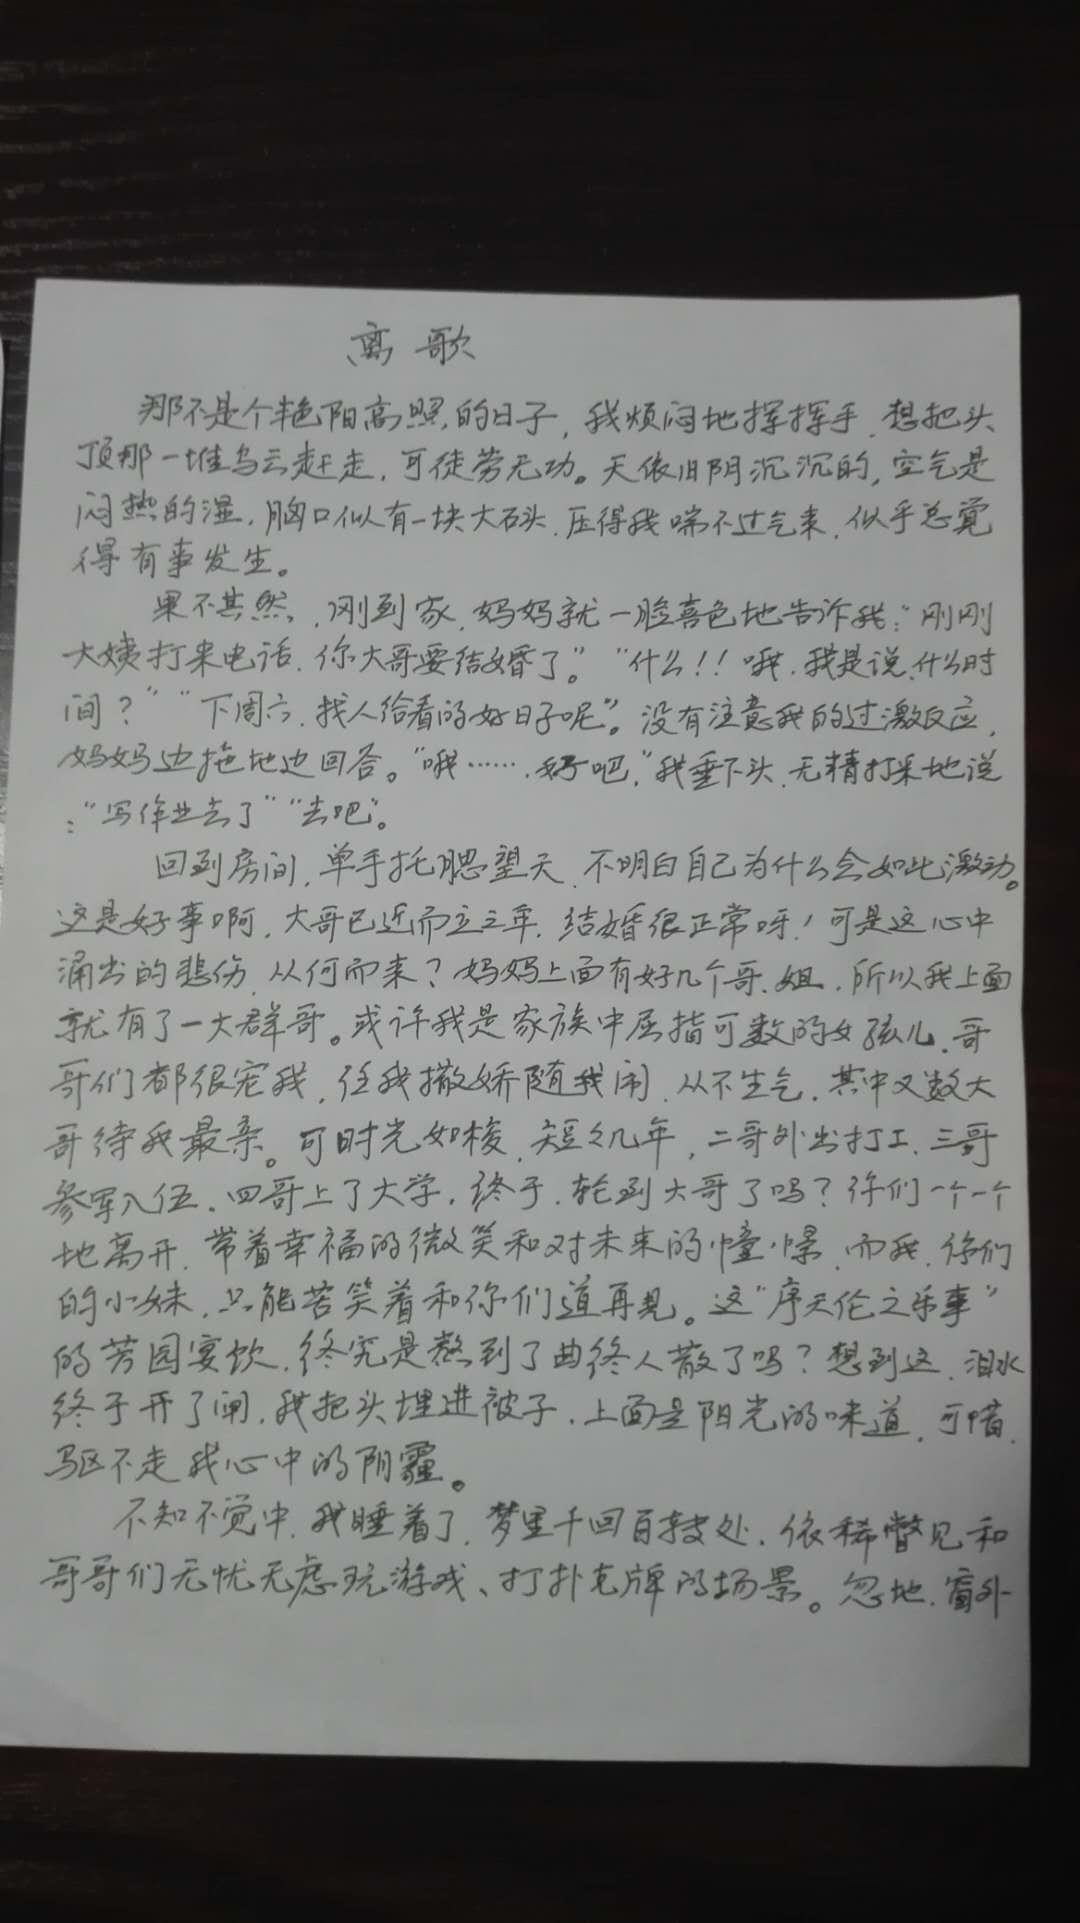 离歌
那不是个艳阳高照的日子，我烦闷地挥挥手，想把头
顶那一堆乌云赶走，可徒劳无功。天依旧阴沉沉的，空气是
闷热的湿，胸口似有一块大石头，压得我喘不过气来，似乎总觉
得有事发生。
果不其然，刚到家，妈妈就一脸喜色地告诉我：“刚刚
大姨打来电话，你大哥要结婚了。”“什么！！哦，我是说，什么时
间？”“下周六，找人给看的好日子呢”。没有注意我的过激反应，
妈妈边拖地边回答。“哦……，好吧，”我垂下头，无精打采地说
：“写作业去了”“去吧”。
回到房间，单手托腮望天，不明白自己为什么会如此激动。
这是好事啊，大哥已近而立之年，结婚很正常呀！可是这心中
涌出的悲伤，从何而来？妈妈上面有好几个哥、姐，所以我上面
就有了一大群哥。或许我是家族中屈指可数的女孩儿，哥
哥们都很宠我，任我撒娇随我闹，从不生气，其中又数大
哥待我最亲。可时光如梭，短短几年，二哥外出打工，三哥
参军入伍，四哥上了大学，终于，轮到大哥了吗？你们一个一个
地离开，带着幸福的微笑和对未来的憧憬，而我，你们
的小妹，只能苦笑着和你们道再见。这“序天伦之乐事”
的芳园宴饮，终究是熬到了曲终人散了吗？想到这，泪水
终于开了闸，我把头埋进被子，上面是阳光的味道，可惜，
驱不走我心中的阴霾。
不知不觉中，我睡着了，梦里千回百转处，依稀瞥见和
哥哥们无忧无虑玩游戏、打扑克牌的场景。忽地，窗外